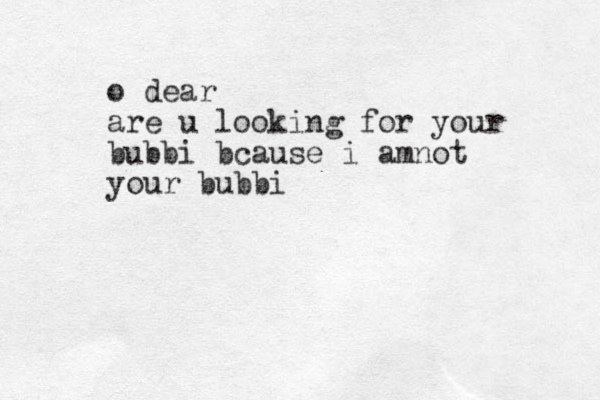 o dear
are u looking for your
bubbi bcause i amnot
your bubbi